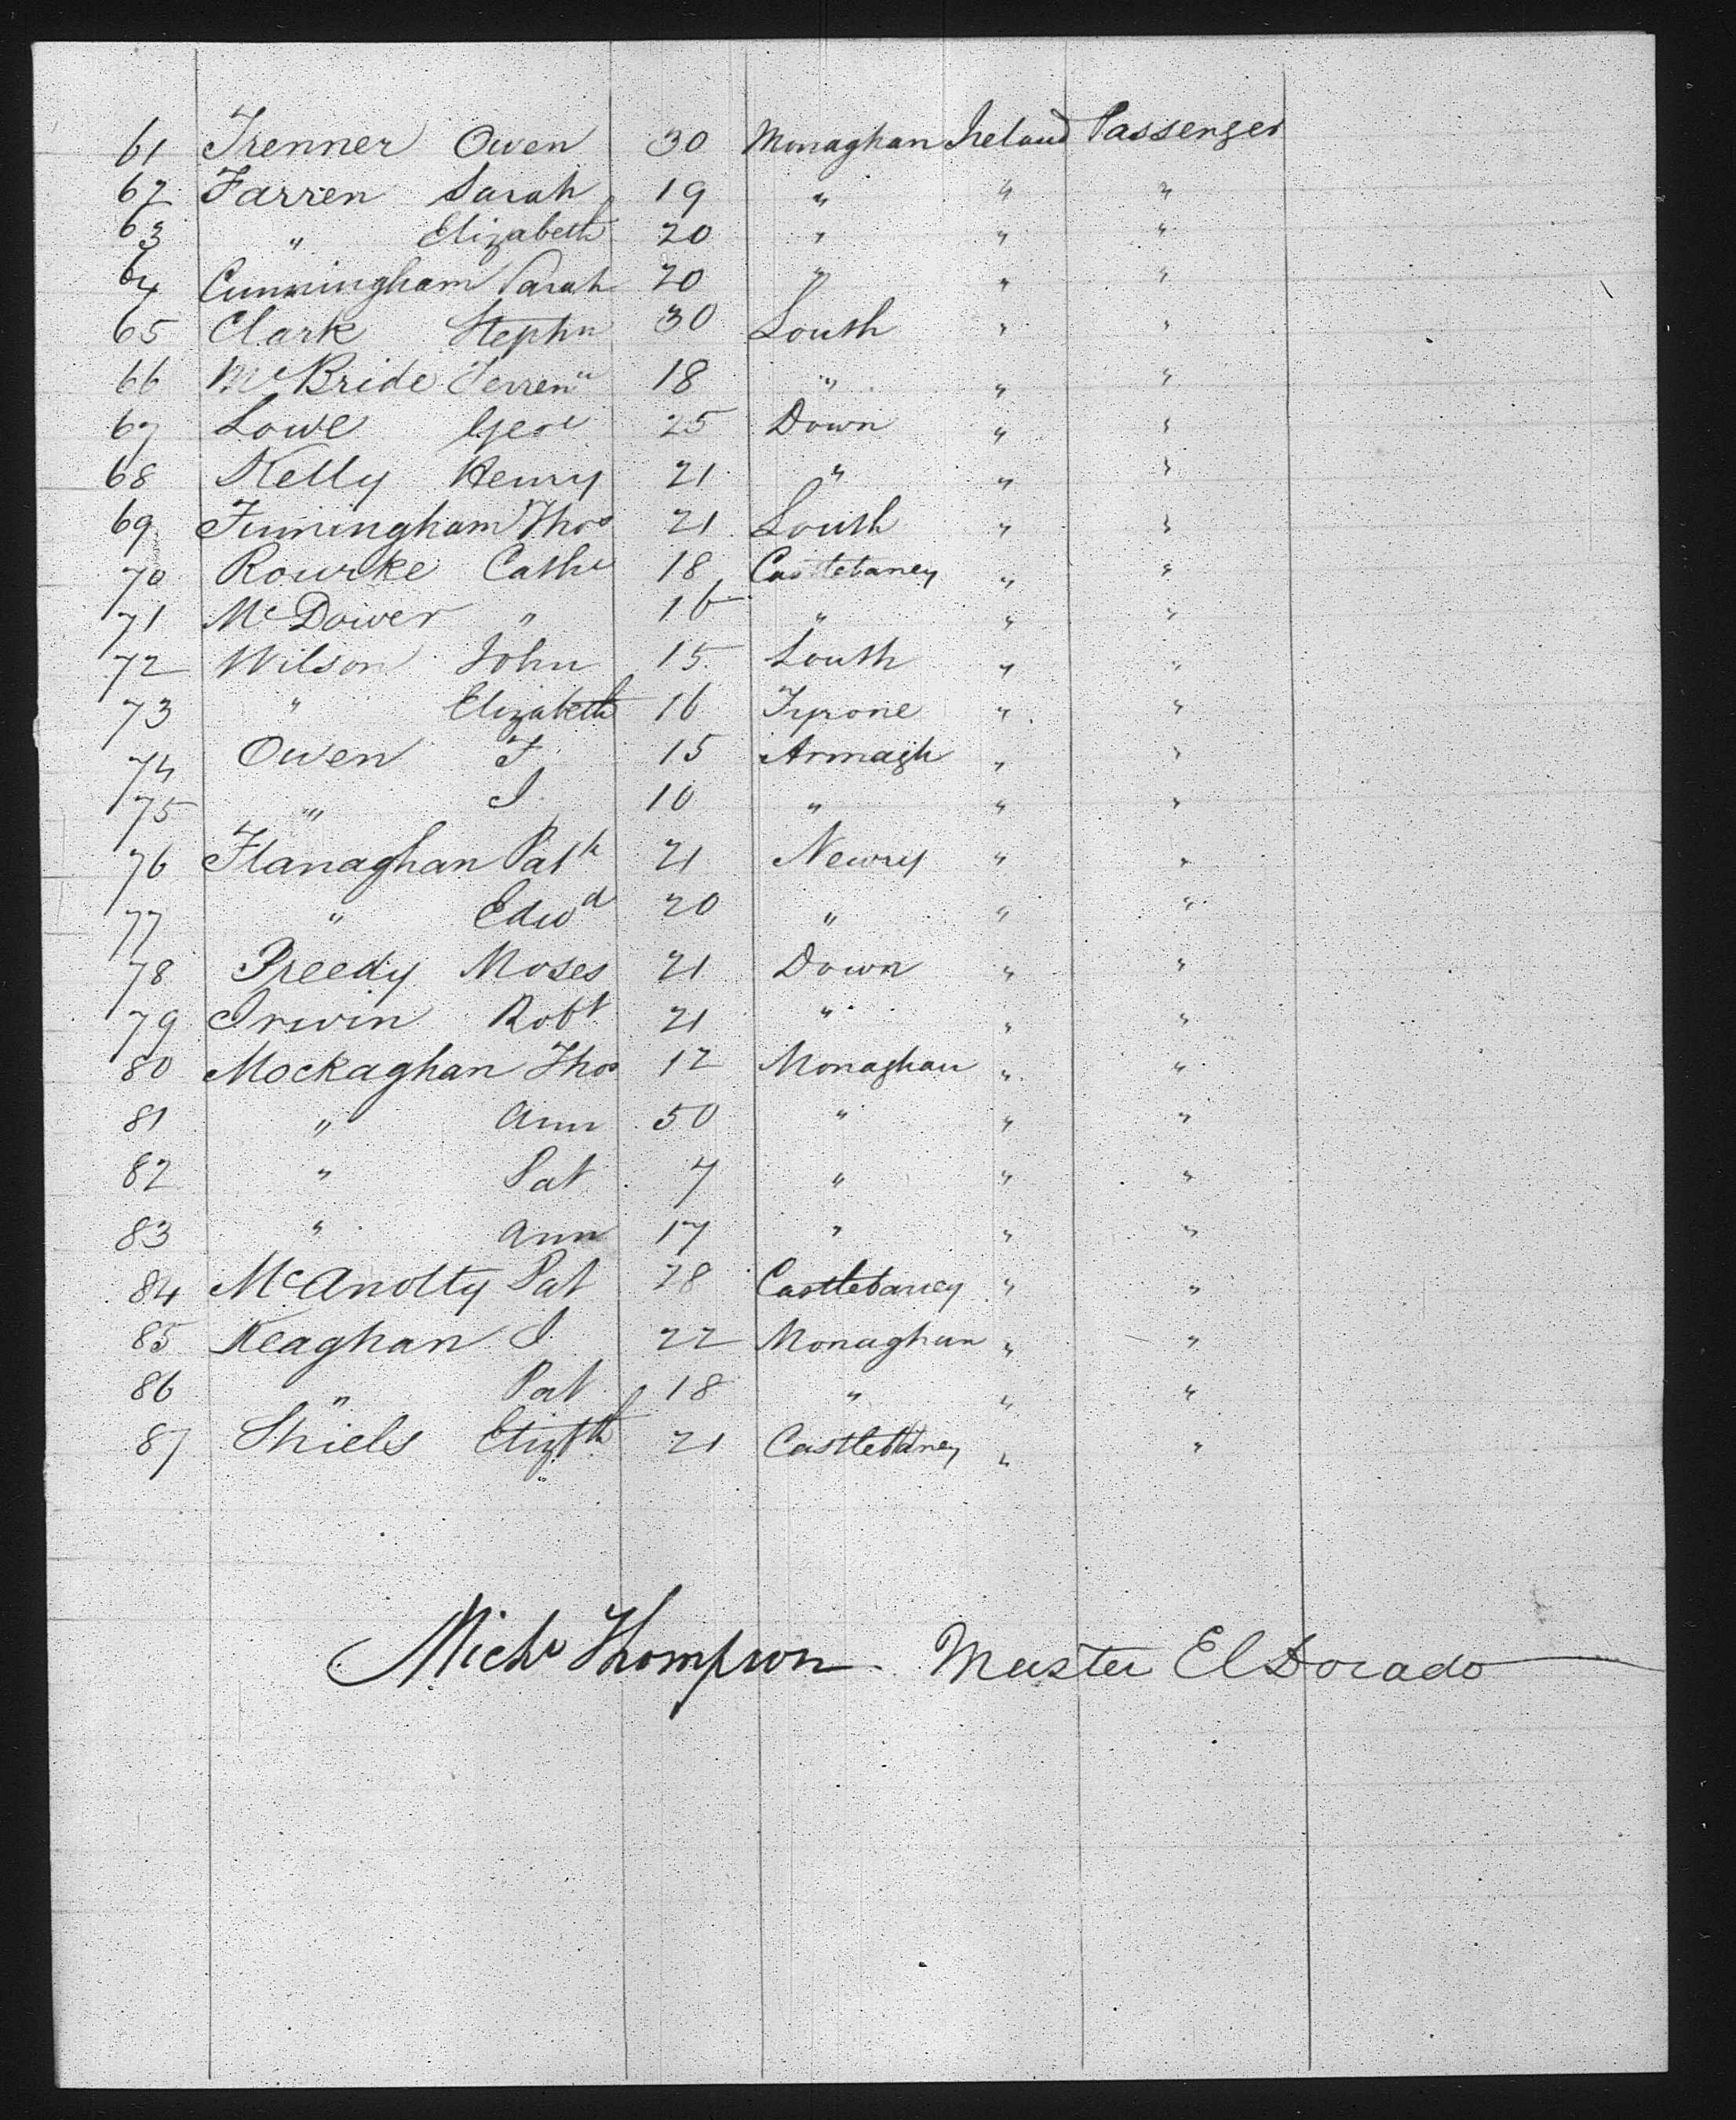 61 Trenner Owen 30 Monaghan Ireland Passenger
62 Farren Sarah 19 " " "
63 " Elizabeth 20 " " "
64 Cunningham Sarah 20 " " "
65 Clark Stephn 30 Louth " "
66 McBride 18 " " "
67 Lowe Geoe 25 Down " "
68 Kelly Henry 21 " " "
69 Thos 21 Louth " "
70 Rourke Cathe 18 Castlebaney " "
71 McDower " 16 " " "
72 Wilson John 15 Louth " "
73 " Elizabeth 16 Tyrone " "
74 Owen 15 Armagh " "
75 " 10 " " "
76 Flanaghan Patk 21 Newry " "
77 " Edwd 20 " " "
78 Preedy Moses 21 Down " "
79 Irwin Robt 21 " " "
80 Mockaghan Thos 12 Monaghan " "
81 " Ann 50 " " "
82 " Pat 7 " " "
83 " Ann 17 " " "
84 McAnolty Pat 28 Castlebaney " "
85 Keaghan J 22 Monaghan " "
86 " Pat 18 " " "
87 Shiels Elizth 21 Castlebaney " "
Michl Thompson Master El Dorado